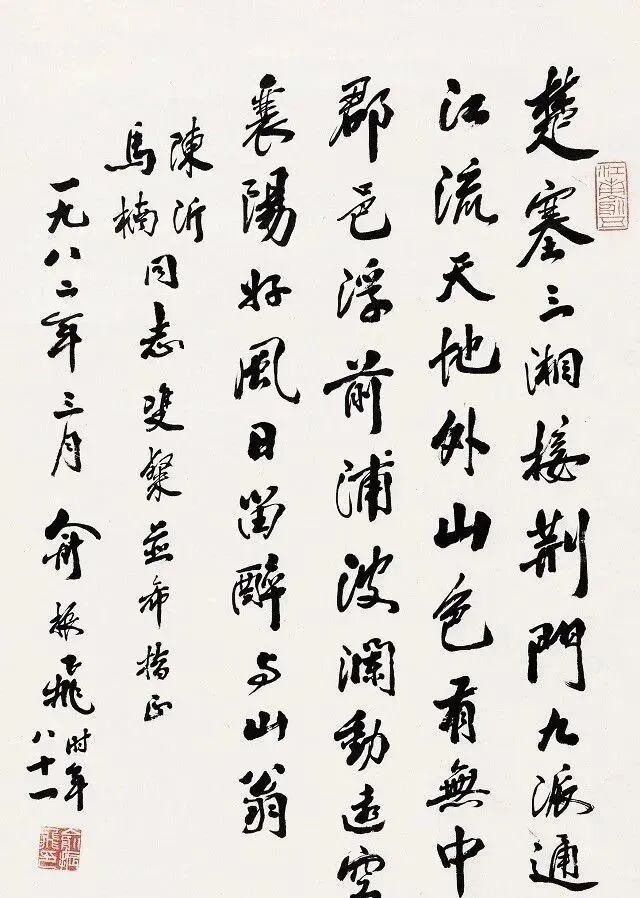 楚塞三湘接荆門九派通
江流天地外山色有無中
郡邑浮前浦波瀾動遠空
襄陽好風日留醉与山翁
陳沂
馬楠
同志雙粲並希指正
一九八二年三月俞振飛时年
八十一
俞振
飛印